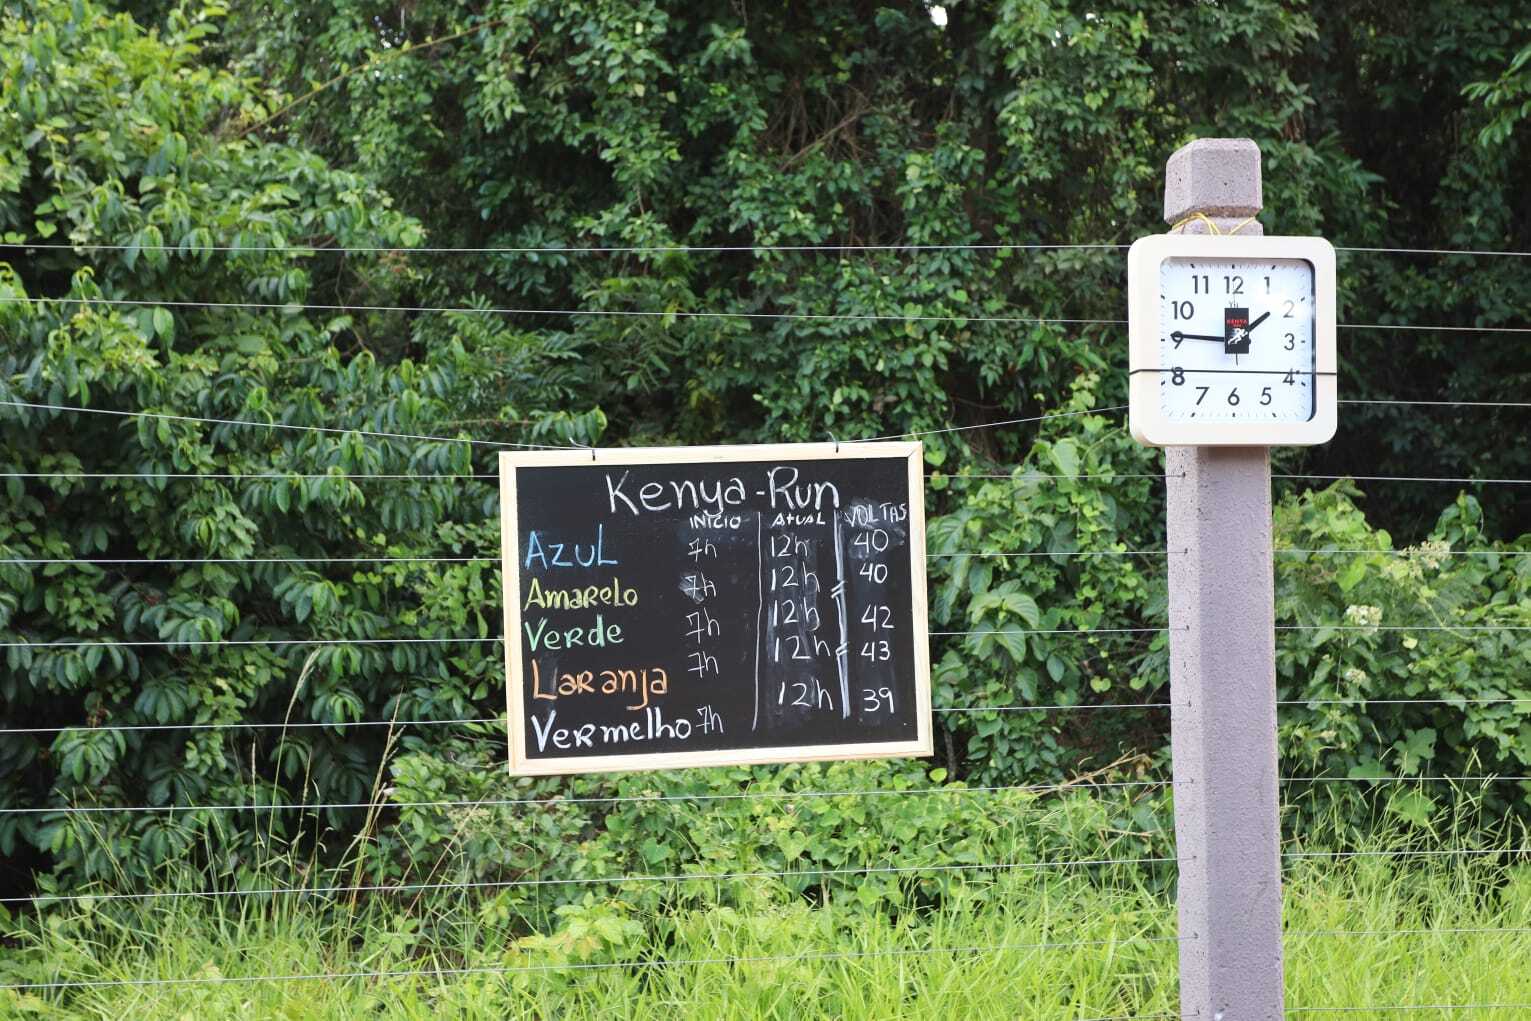 Kenya-Run
INÍCIO ATUAL VOLTAS
AZUL 7h 12h 40
AMARELO 7h 12h 40
VERDE 7h 12h 42
LARANJA 7h 12h 43
VERMELHO 7h 12h 39
11 12 1
10 2
KENYA
9 3
8 4
7 6 5